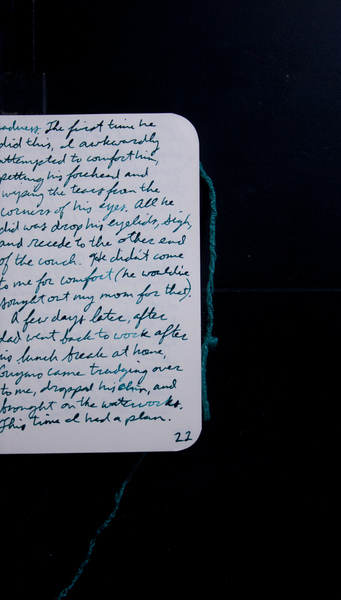 sadness. The first time he
did this, I awkwardly
attempted to comfort him,
petting his forehead and
wyping the tears from the
corners of his eyes. All he
did was drop his eyelids, sigh,
and recede to the other end
of the couch. He didn't come
to me for comfort (he would've
sought out my mom for that).
A few days later, after
dad went back to work after
his lunch break at home,
came trudging over
to me, dropped his chin, and
brought on the waterworks.
This time I had a plan.
22